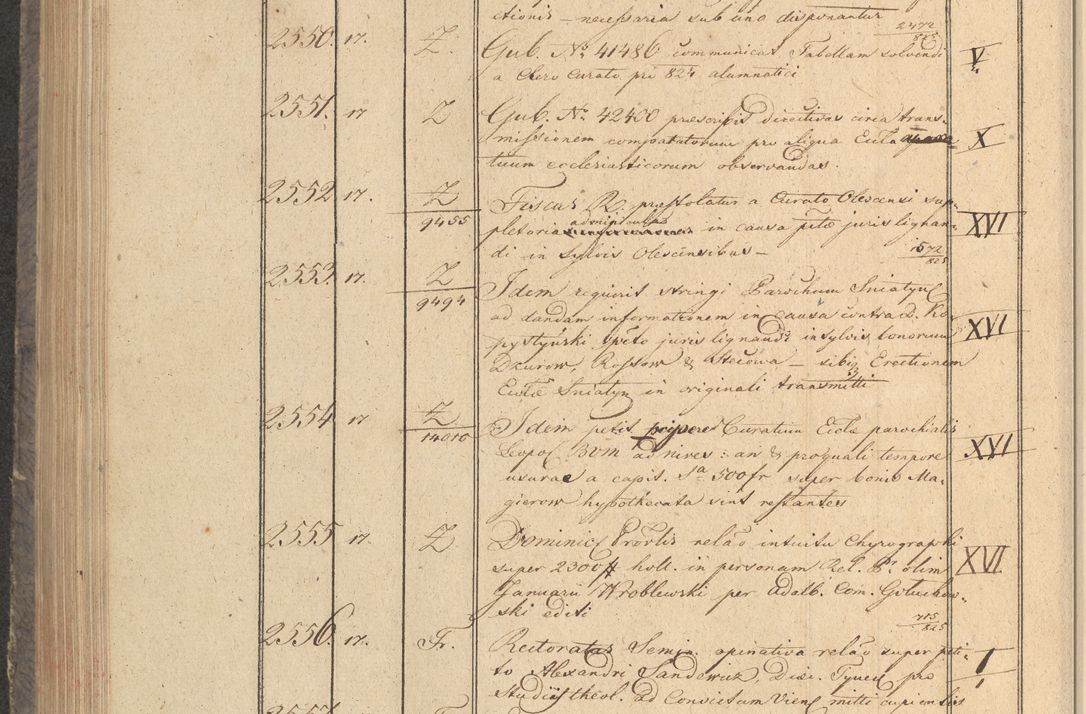 ctionis – necessaria sub uno disponantur
2472
825
2550. 17. Z. Gub. Nº 41486 communicat Tabellam solvendi V
a Clero Curato pro 824 alumnatici
2551. 17 Z Gub. Nº 42400 praescripsit directivas circa trans-
missionem computatorum pro aliqua Eccla X
tuum ecclesiasticorum observandas.
2552 17. Z Fiscus R. praestolatur a Curato Olescensi sup- XVI
9455 pletoria in causa juris lignan-
di in Sylvis Olescensibus –
1572
825
2553. 17. Z Idem requirit stringi Parochum Sniatyn
9494 ad dandam informationem in Causa contra D. Ko-
pystyński juris lignandi in sylvis bonorum XVI
Dzurow, Rossow & Stecowa – sibiq Erectionem
Eccle Sniatyn in originali transmitti
2554 17 Z Idem petit Curatum Eccle parochialis
14010 Leopol BVM ad nives: an & pro quali tempore XVI
usurae a capit. 500 fr super bonis Ma-
gierow hypothecata sint restantes
2555 17. Z Dominic relao intuitu Chyrographi XVI
super 2300 # holl. in personam olim
Januarii Wroblewski per Adalb. Com. Goluchow-
ski editi
715
825
2556. 17. Fr. Rectoratus Semin. opinativa relao super peti- I
to Alexandri Sandewicz, pro
Studiis theol. ad Convictum Vien mitti cupientis